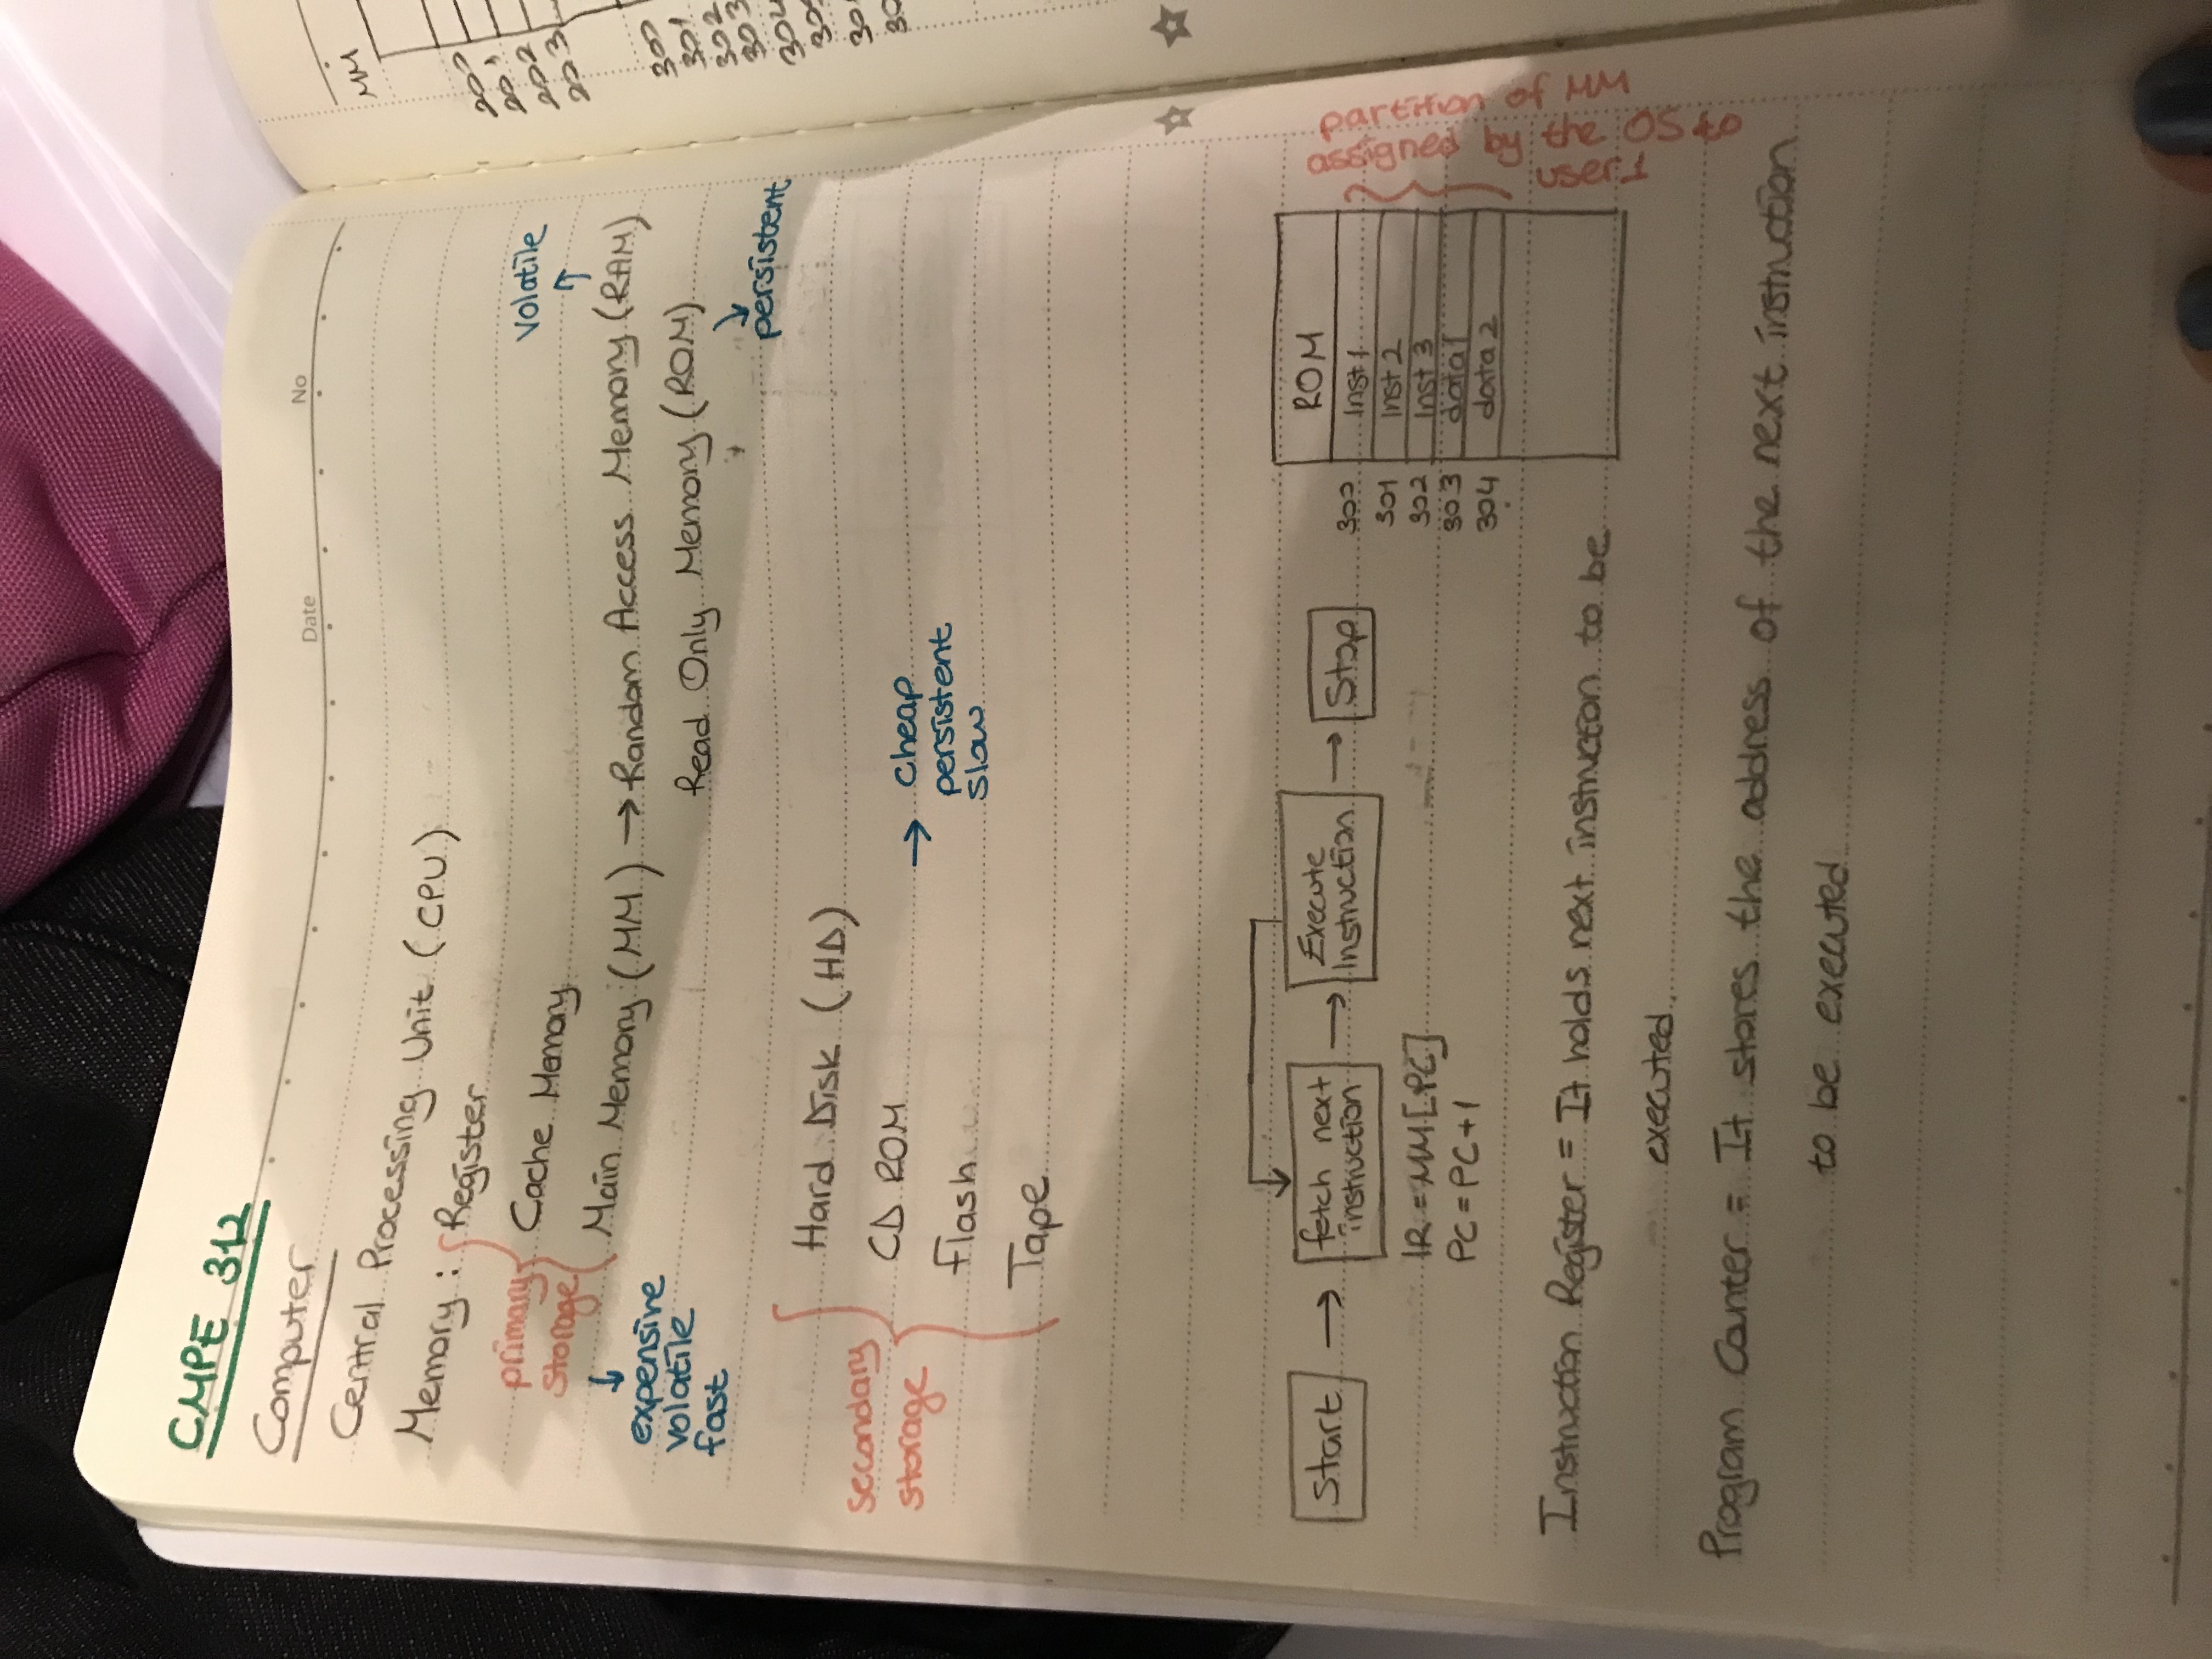 CMPE 312
Date No
Computer
Central Processing Unit (CPU)
Memory : Register
primary
storage
Cache Memory
Main Memory (MM) → Random Access Memory (RAM)
Volatile
↑
Read Only Memory (ROM)
persistent
↓
expensive
volatile
fast
secondary
storage
Hard Disk (HD)
CD ROM
Flash
Tape
→ cheap
persistent
slow
Start → fetch next
instruction
→ Execute
Instruction
→ Stop
IR = MM[PC]
PC = PC+1
ROM
300 Inst 1
301 Inst 2
302 Inst 3
303 data 1
304 data 2
partition of MM
assigned by the OS to
user 1
Instruction Register = It holds next instructon to be
executed.
Program Counter = It stores the address of the next instruction
to be executed
MM
200
201
202
203
300
301
302
303
304